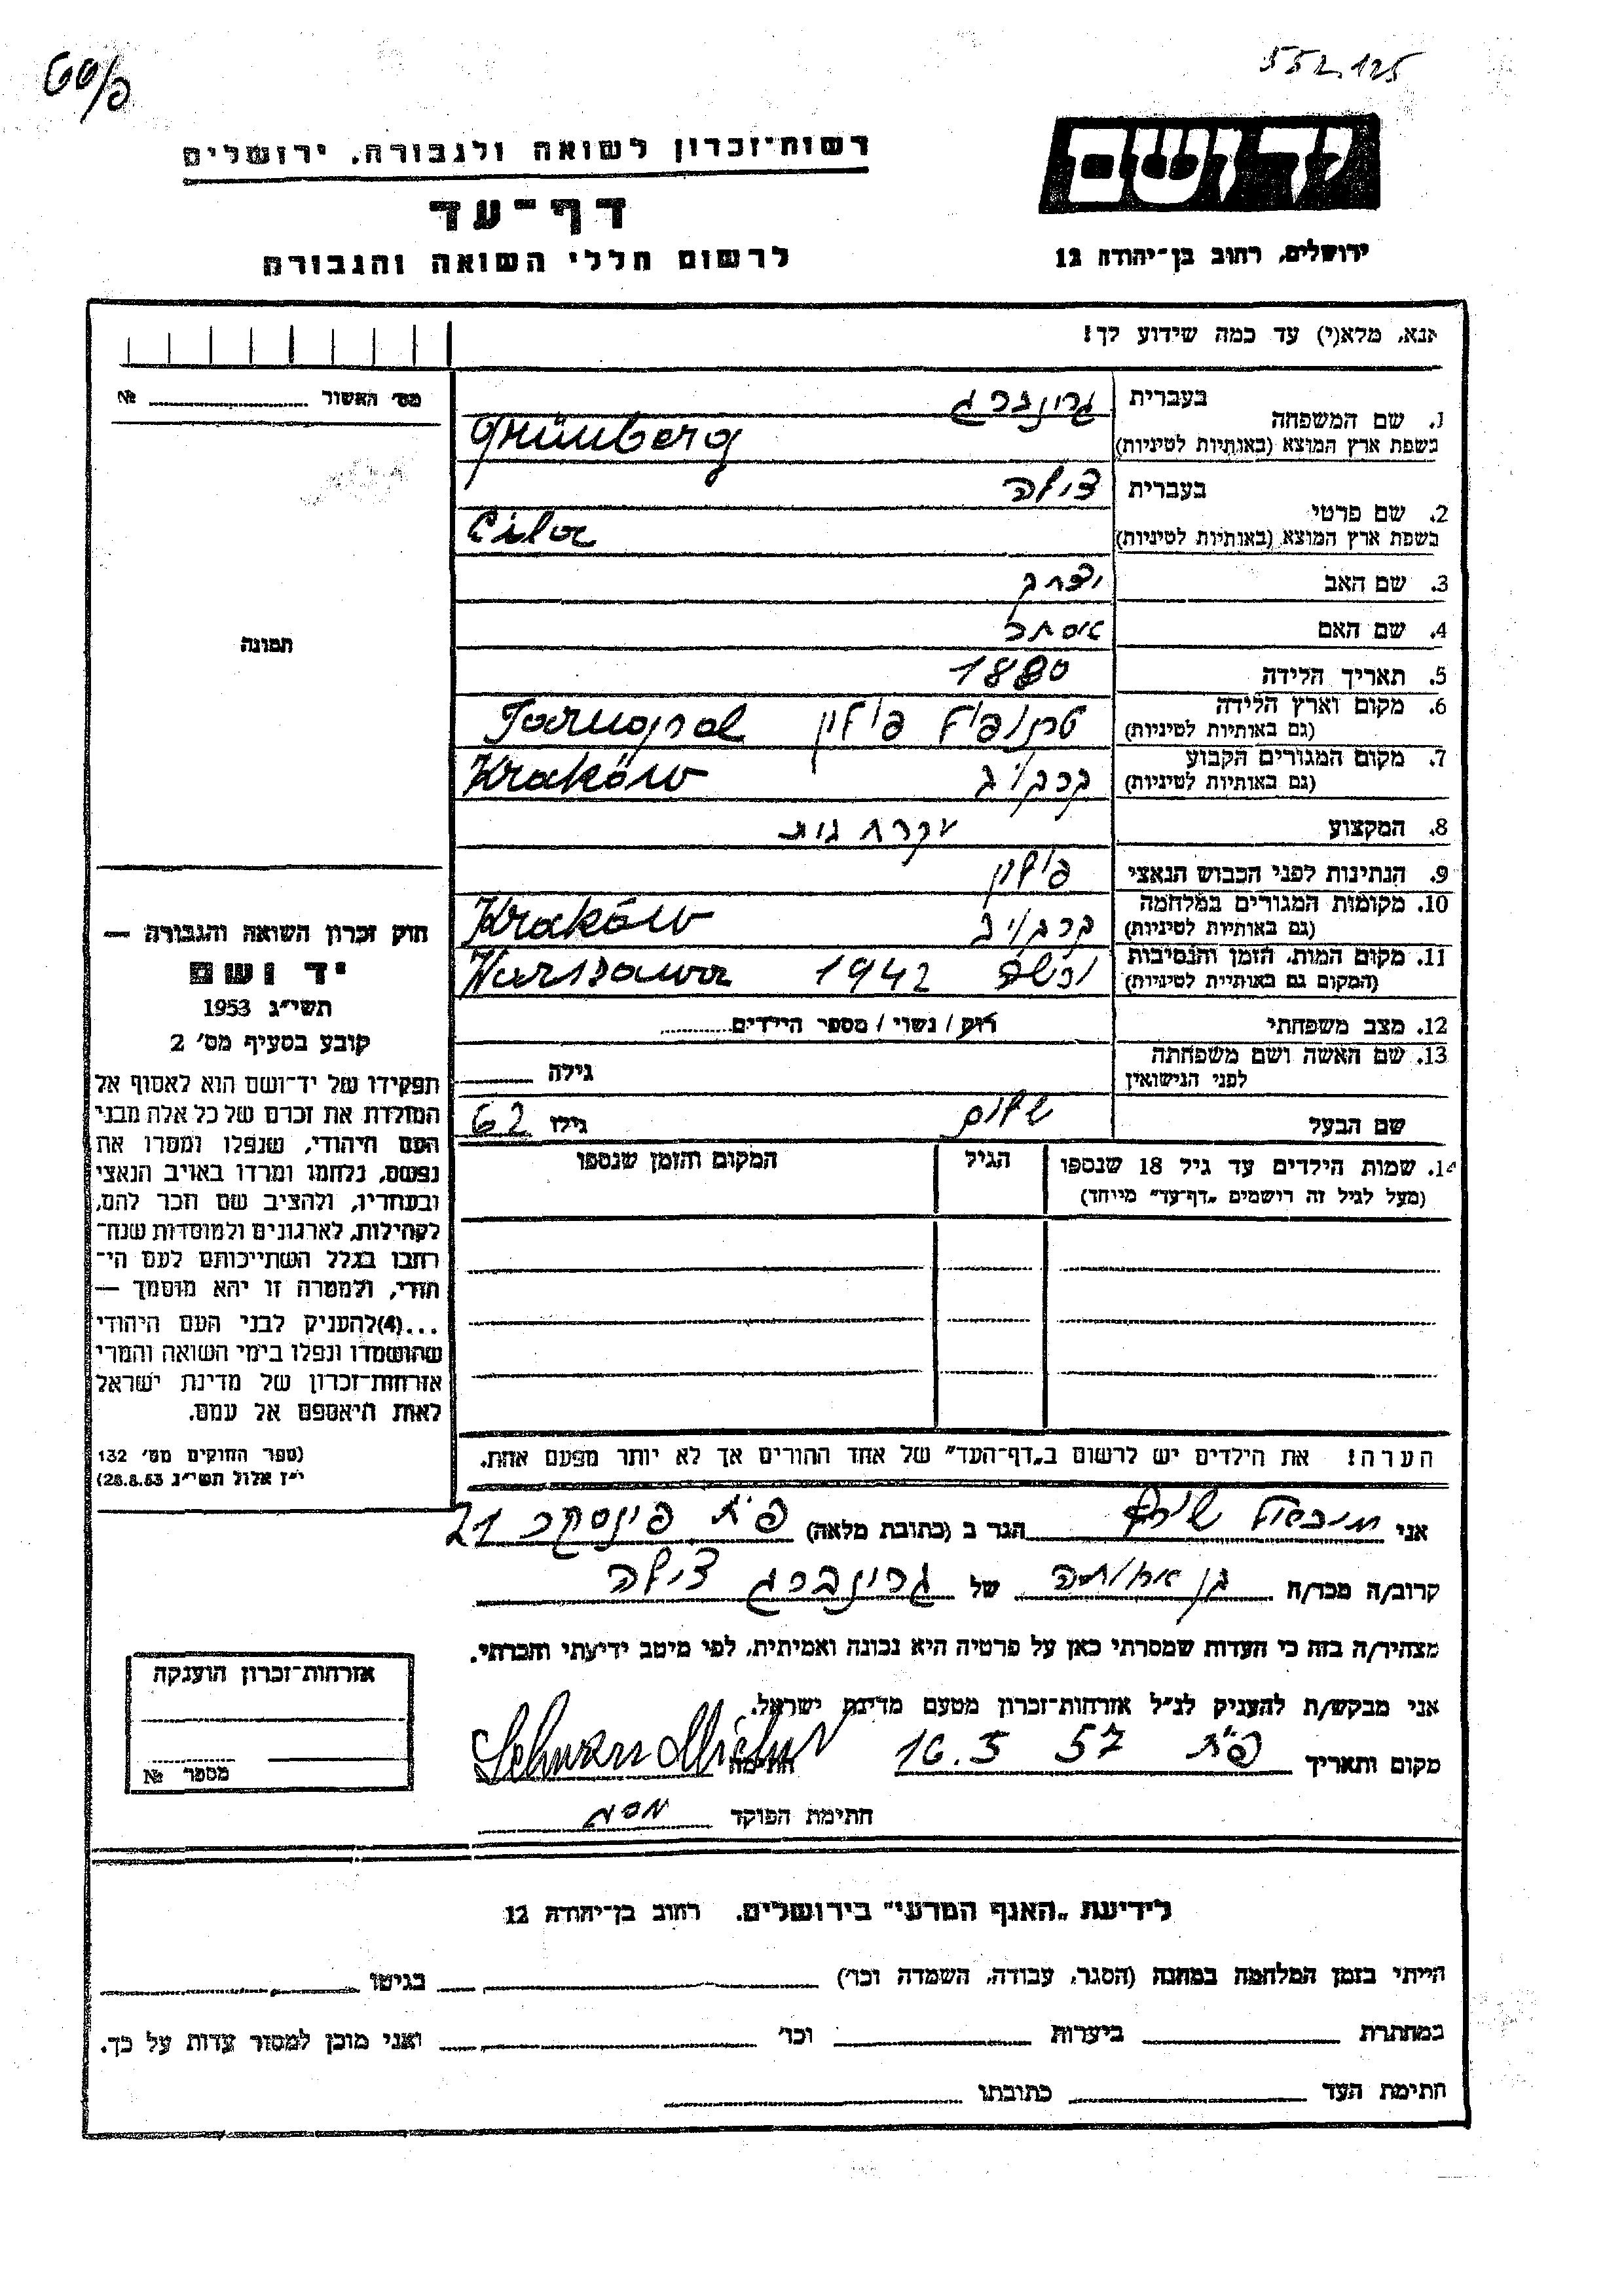 552.125
רשות־זכרון לשואה ולגבורה, ירושלים
דף־עד
לרשום חללי השואה והגבורה
יד ושם
ירושלים, רחוב בן־יהודה 12
אנא, מלא(י) עד כמה שידוע לך!
מס׳ האשור № 
1. שם המשפחה בעברית גרינברג
בשפת ארץ המוצא (באותיות לטיניות) Grünberg
2. שם פרטי בעברית צילה
בשפת ארץ המוצא (באותיות לטיניות) Cila
3. שם האב יצחק
4. שם האם אסתר
5. תאריך הלידה 1880
6. מקום וארץ הלידה (גם באותיות לטיניות) טרנופול פולין Tarnopol
7. מקום המגורים הקבוע (גם באותיות לטיניות) קרקוב Kraków
8. המקצוע עקרת בית
9. הנתינות לפני הכבוש הנאצי פולין
10. מקומות המגורים במלחמה (גם באותיות לטיניות) קרקוב Kraków
11. מקום המות, הזמן והנסיבות (המקום גם באותיות לטיניות) ורשה 1942 Warszawa
12. מצב משפחתי רוק / נשוי / מספר הילדים
13. שם האשה ושם משפחתה לפני הנישואין גילה
שם הבעל שלום גילו 62
14. שמות הילדים עד גיל 18 שנספו הגיל המקום והזמן שנספו
(מעל לגיל זה רושמים „דף־עד” מיוחד)
הערה! את הילדים יש לרשום ב„דף־העד” של אחד ההורים אך לא יותר מפעם אחת.
תמונה
חוק זכרון השואה והגבורה —
יד ושם
תשי״ג 1953
קובע בסעיף מס׳ 2
תפקידו של יד־ושם הוא לאסוף אל
המולדת את זכרם של כל אלה מבני
העם היהודי, שנפלו ומסרו את
נפשם, נלחמו ומרדו באויב הנאצי
ובעוזריו, ולהציב שם וזכר להם,
לקהילות, לארגונים ולמוסדות שנח־
רבו בגלל השתייכותם לעם הי־
הודי, ולמטרה זו יהא מוסמך —
...(4)להעניק לבני העם היהודי
שהושמדו ונפלו בימי השואה והמרי
אזרחות־זכרון של מדינת ישראל
לאות היאספם אל עמם.
(ספר החוקים מס׳ 132
י״ז אלול תשי״ג 28.8.53)
אני מיכאל הגר ב (כתובת מלאה) פ״ת פינסקר 21
קרוב/ה מכר/ה בן אחותה של גרינברג צילה
מצהיר/ה בזה כי העדות שמסרתי כאן על פרטיה היא נכונה ואמיתית, לפי מיטב ידיעתי והכרתי.
אני מבקש/ת להעניק לנ״ל אזרחות־זכרון מטעם מדינת ישראל.
מקום ותאריך פ״ת 16.5 57 חתימה
חתימת הפוקד
אזרחות־זכרון הוענקה
מספר №
לידיעת „האגף המדעי” בירושלים, רחוב בן־יהודה 12
הייתי בזמן המלחמה במחנה (הסגר, עבודה, השמדה וכו׳) בגיטו
במחתרת ביערות וכו׳ ואני מוכן למסור עדות על כך.
חתימת העד כתובתו